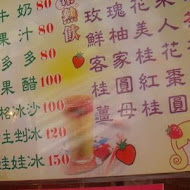 牛奶80
果汁80
多多80
果醋100
冰沙100
土剉冰120
娃娃冰150
玫瑰花
鮮柚美人
客家桂花
桂圓紅棗
薑母桂圓